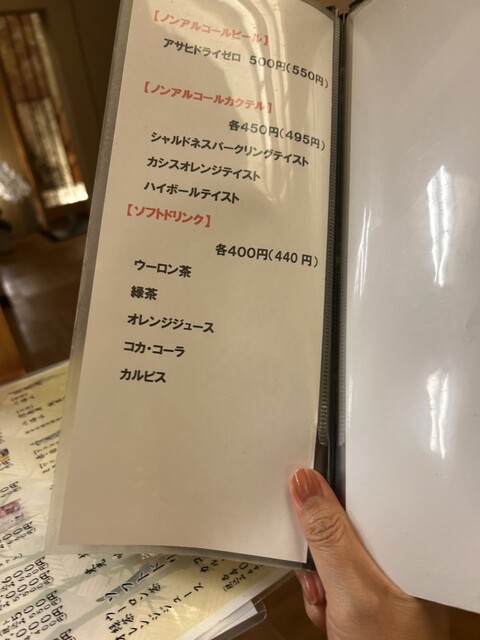 【ノンアルコールビール】
アサヒドライゼロ 500円(550円)
【ノンアルコールカクテル】
各450円(495円)
シャルドネスパークリングテイスト
カシスオレンジテイスト
ハイボールテイスト
【ソフトドリンク】
各400円(440円)
ウーロン茶
緑茶
オレンジジュース
コカ・コーラ
カルピス